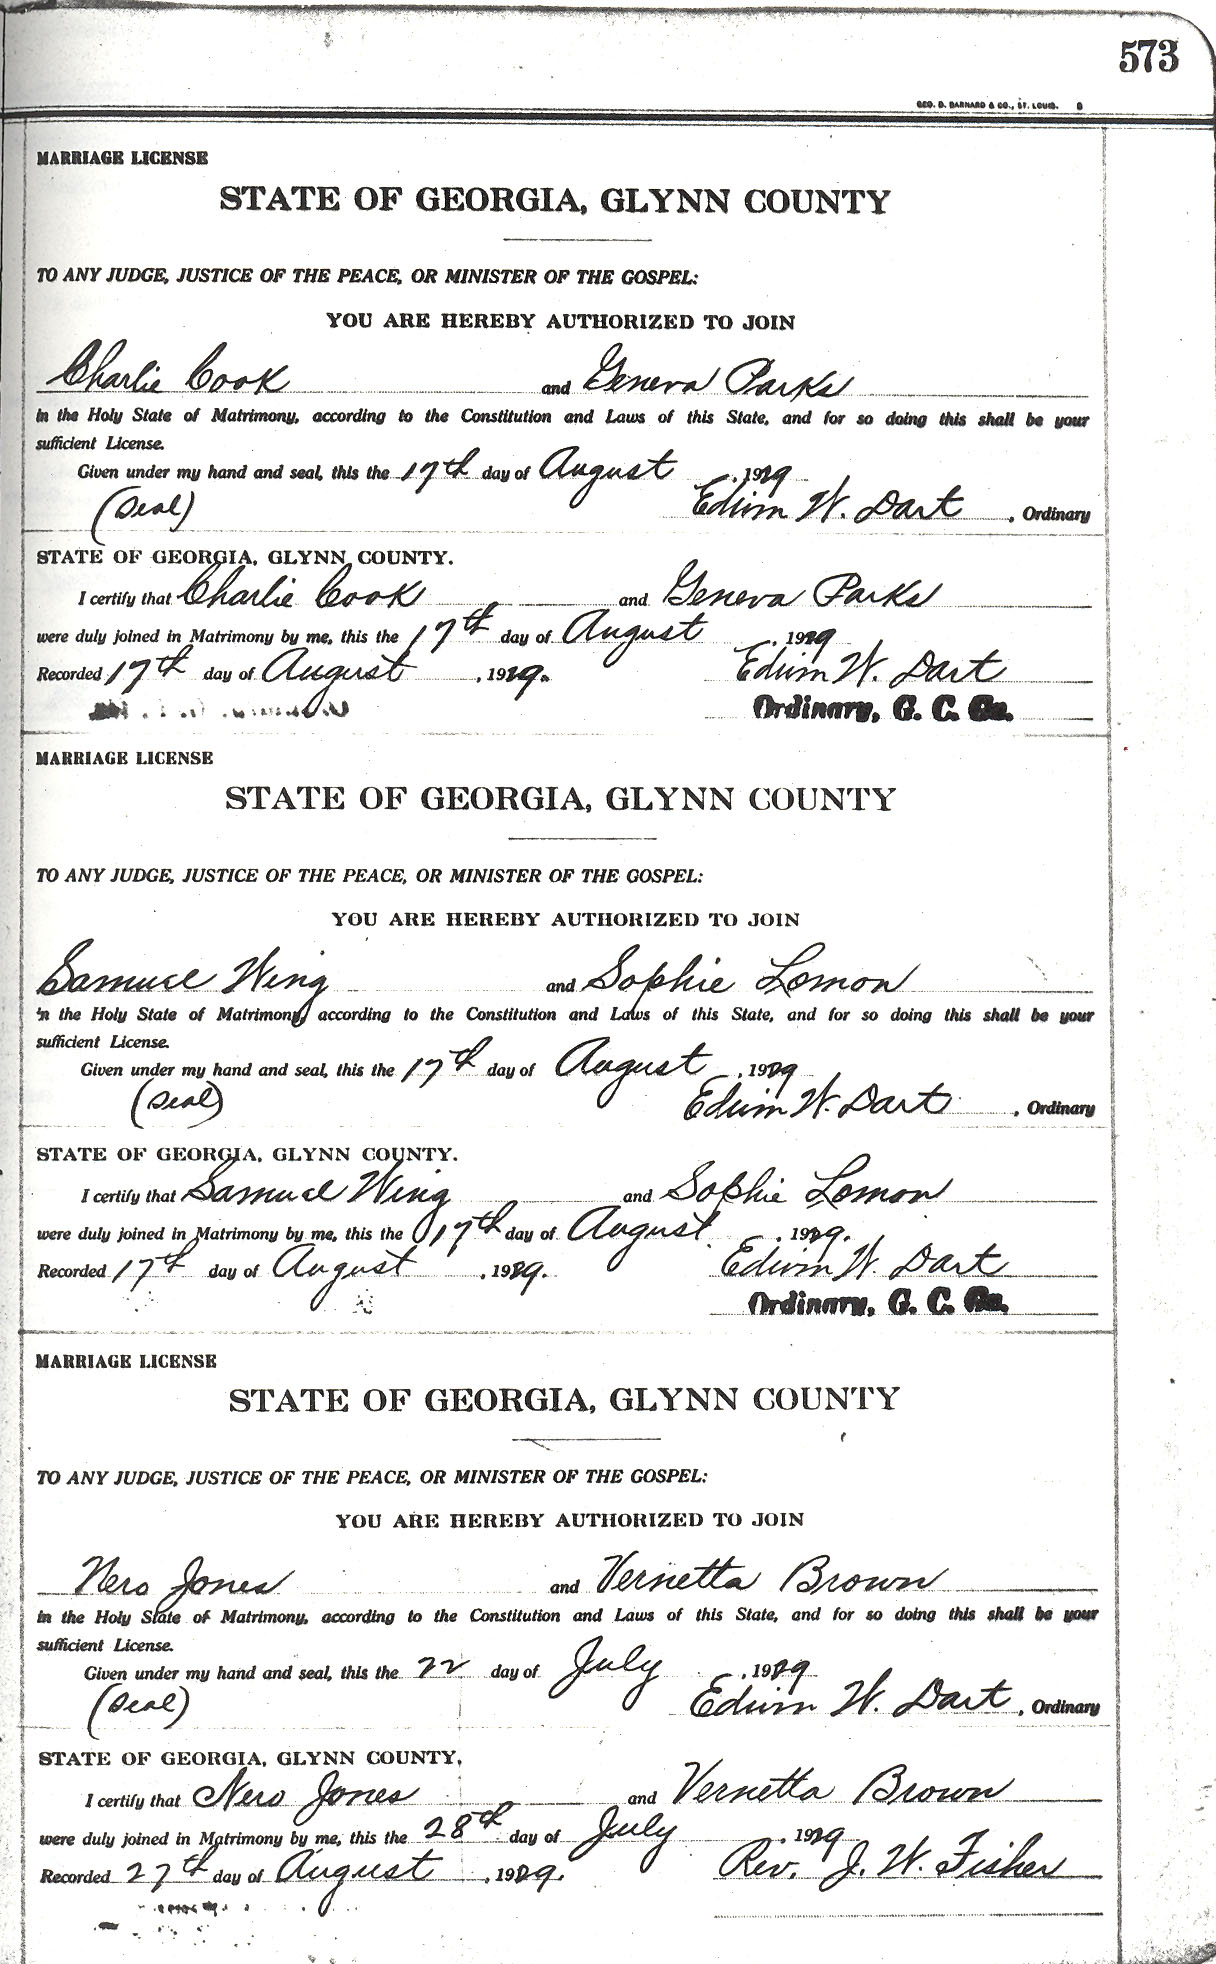 573
GEO. D. BARNARD & CO., ST. LOUIS. B
MARRIAGE LICENSE
STATE OF GEORGIA, GLYNN COUNTY
TO ANY JUDGE, JUSTICE OF THE PEACE, OR MINISTER OF THE GOSPEL:
YOU ARE HEREBY AUTHORIZED TO JOIN
Charlie Cook and Geneva Parks
in the Holy State of Matrimony, according to the Constitution and Laws of this State, and for so doing this shall be your
sufficient License.
Given under my hand and seal, this the 17th day of August , 1929
(Seal) Edwin W. Dart , Ordinary
STATE OF GEORGIA, GLYNN COUNTY.
I certify that Charlie Cook and Geneva Parks
were duly joined in Matrimony by me, this the 17th day of August , 1929
Recorded 17th day of August , 1929. Edwin W. Dart
Ordinary, G. C. Ga.
MARRIAGE LICENSE
STATE OF GEORGIA, GLYNN COUNTY
TO ANY JUDGE, JUSTICE OF THE PEACE, OR MINISTER OF THE GOSPEL:
YOU ARE HEREBY AUTHORIZED TO JOIN
Samuel Wing and Sophie Lemon
in the Holy State of Matrimony, according to the Constitution and Laws of this State, and for so doing this shall be your
sufficient License.
Given under my hand and seal, this the 17th day of August , 1929
(Seal) Edwin W. Dart , Ordinary
STATE OF GEORGIA, GLYNN COUNTY.
I certify that Samuel Wing and Sophie Lemon
were duly joined in Matrimony by me, this the 17th day of August , 1929.
Recorded 17th day of August , 1929. Edwin W. Dart
Ordinary, G. C. Ga.
MARRIAGE LICENSE
STATE OF GEORGIA, GLYNN COUNTY
TO ANY JUDGE, JUSTICE OF THE PEACE, OR MINISTER OF THE GOSPEL:
YOU ARE HEREBY AUTHORIZED TO JOIN
Nero Jones and Vernetta Brown
in the Holy State of Matrimony, according to the Constitution and Laws of this State, and for so doing this shall be your
sufficient License.
Given under my hand and seal, this the 22 day of July , 1929
(Seal) Edwin W. Dart , Ordinary
STATE OF GEORGIA, GLYNN COUNTY.
I certify that Nero Jones and Vernetta Brown
were duly joined in Matrimony by me, this the 28th day of July , 1929
Recorded 27th day of August , 1929. Rev. J. W. Fisher